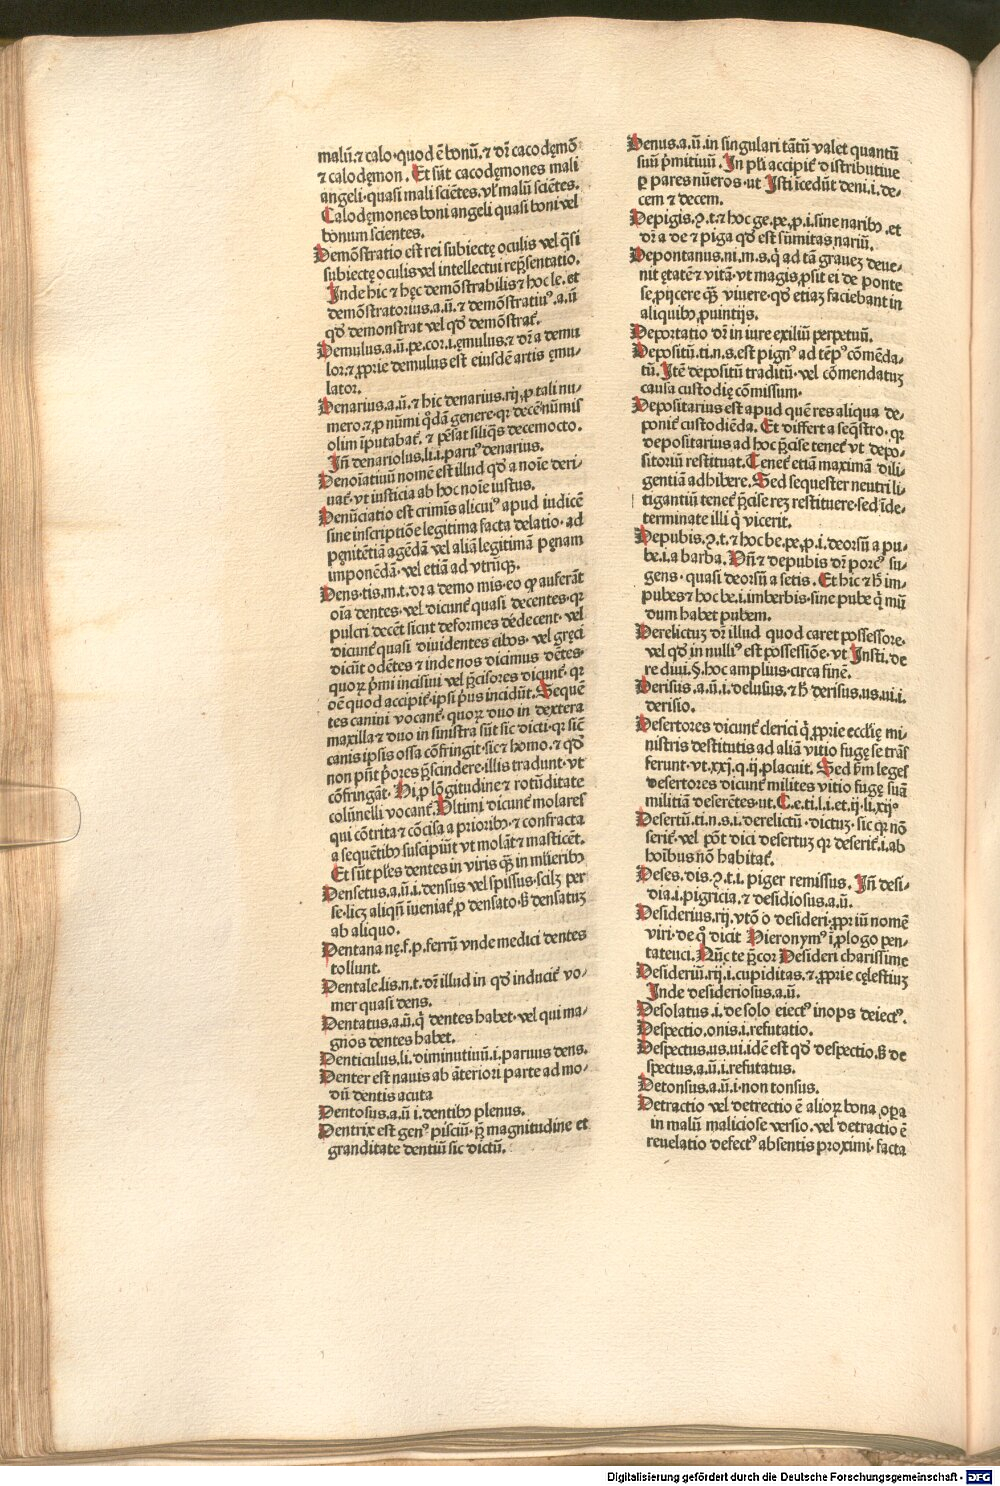 malū. ⁊ calo. quod ē bonū. ⁊ dr̄ cacodęmō
⁊ calodęmon. Et sūt cacodęmones mali
angeli. quasi mali sciētes. vł malū sciētes.
Calodęmones boni angeli quasi boni vel
bonum scientes.
Demōstratio est rei subiectę oculis vel q̄si
subiectę oculis vel intellectui rep̄sentatio.
Inde hic ⁊ hęc demōstrabilis ⁊ hoc le. et
demōstratorius.a.ū. ⁊ demōstratiuꝰ.a.ū
qđ demonstrat vel qđ demōstrat᷑.
Demulus.a.ū.pe.cor.i.ęmulus. ⁊ dr̄ a demu
lor. ⁊ ꝓprie demulus est eiusdē artis ęmu-
lator.
Denarius.a.ū. ⁊ hic denarius.rij. ꝓ tali nu-
mero. ⁊ ꝓ nūmi q̄dā genere. qr decē nūmis
olim īputabat᷑. ⁊ pēsat siliq̄s decemocto.
Iñ denariolus.li.i.paruꝰ denarius.
Denoīatiuū nomē est illud qđ a noīe deri-
uat᷑. vt iusticia ab hoc noīe iustus.
Denūciatio est crimīs alicuiꝰ apud iudicē
sine inscriptiōe legitima facta delatio. ad
pęnitētiā agēdā vel aliā legitimā pęnam
imponēdā. vel etiā ad vtrūqꝫ.
Dens.tis.m.t.dr̄ a demo mis. eo ꝙ auferāt
oīa dentes. vel dicunt᷑ quasi decentes. qr
pulcri decēt sicut deformes dędecent. vel
dicunt᷑ quasi diuidentes cibos. vel gręci
dicūt odētes ⁊ inde nos dicimus dētes.
quoꝝ p̄mi incisiui vel p̄cisores dicunt᷑. qr
oē quod accipit᷑. ipsi p̄us incidūt. Sequē
tes canini vocant᷑. quoꝝ duo in dextera
maxilla ⁊ duo in sinistra sūt sic dicti. qr sic̄
canis ipsis ossa cōfringit. sic ⁊ homo. ⁊ qđ
non pn̄t p̄ores p̄scindere. illis tradunt. vt
cōfringāt. Hi ꝓ lōgitudine ⁊ rotūditate
colūnelli vocant᷑. Ultimi dicunt᷑ molares
qui cōtrita ⁊ cōcisa a prioribꝰ ⁊ confracta
a sequētibꝰ suscipiūt vt molāt ⁊ masticēt.
Et sūt pl̄es dentes in viris qꝫ in ml̄ieribꝰ
Densetus.a.ū.i.densus vel spissus. scilꝫ per
se. licꝫ aliqñ īueniat᷑ ꝓ densato. ß densatuꝫ
ab aliquo.
Dentana nę.f.p.ferrū vnde medici dentes
tollunt.
Dentale.lis.n.t.dr̄ illud in qđ inducit᷑ vo-
mer quasi dens.
Dentatus.a.ū.q̇ dentes habet. vel qui ma-
gnos dentes habet.
Denticulus.li.diminutiuū.i.paruus dens.
Denter est nauis ab āteriori parte ad mo-
dū dentis acuta
Dentosus.a.ū i.dentibꝰ plenus.
Dentrix est genꝰ pisciū. p̄ magnitudine et
granditate dentiū sic dictū.
Denus.a.ū.in singulari tātū valet quantū
suū p̄mitiuū. In pl̄i accipit᷑ distributiue
ꝑ pares nūeros. vt Isti īcedūt deni.i.de-
cem ⁊ decem.
Depigis.ꝯ.t. ⁊ hoc ge.pe.p.i.sine naribꝰ. et
dr̄ a de ⁊ piga qđ est sūmitas nariū.
Depontanus.ni.m.s.q̇ ad tā graueꝫ deue-
nit ętatē ⁊ vitā. vt magis ꝓsit ei de ponte
se ꝓijcere qꝫ viuere. qđ etiaꝫ faciebant in
aliquibꝰ ꝓuintijs.
Deportatio dr̄ in iure exiliū perpetuū.
Depositū.ti.n.s.est pignꝰ ad tēpꝰ cōmēda-
tū. Itē depositū traditū. vel cōmendatuꝫ
causa custodię cōmissum.
Depositarius est apud quē res aliqua de-
ponit᷑ custodiēda. Et differt a seq̄stro. qr
depositarius ad hoc p̄cise tenet᷑ vt depo-
sitoriū restituat. Tenet᷑ etiā maximā dili-
gentiā adhibere. Sed sequester neutri li-
tigantiū tenet᷑ p̄cise reꝫ restituere. sed īde-
terminate illi q̇ vicerit.
Depubis.ꝯ.t. ⁊ hoc be.pe.p.i.deorsū a pu-
be.i.a barba. Vñ ⁊ depubis dr̄ porcꝰ su-
gens. quasi deorsū a setis. Et hic ⁊ h̄ im-
pubes ⁊ hoc be.i.imberbis. sine pube q̇ nū
dum habet pubem.
Derelictuꝫ dr̄ illud quod caret possessore.
vel qđ in nulliꝰ est possessiōe. vt Insti. de
re diui. §. hoc amplius. circa finē.
Derisus.a.ū.i.delusus. ⁊ h̄ derisus.us.ui.i.
derisio.
Desertores dicunt᷑ clerici q̇ ꝓprie eccłię mi-
nistris destitutis ad aliā vitio fugę se trās
ferunt. vt.xxj.q.ij.placuit. Sed ẜm leges
desertores dicunt᷑ milites vitio fugę suā
militiā deserētes. ut. C.e.ti.l.i.et.ij.li.xijꝰ
Desertū.ti.n.s.i.derelictū. dictuꝫ. sic qr nō
serit᷑. vel pōt dici desertuꝫ qr deserit᷑.i.ab
hoībus nō habitat᷑.
Deses.dis.ꝯ.t.i.piger remissus. Iñ desi-
dia.i.pigricia. ⁊ desidiosus.a.ū.
Desiderius.rij.vtō o desideri. ꝓpriū nomē
viri. de q̊ dicit Hieronymꝰ ī ꝓlogo pen-
tateuci. Nūc te p̄cor Desideri charissime
Desideriū.rij.i.cupiditas. ⁊ ꝓprie cęlestiuꝫ
Inde desideriosus.a.ū.
Desolatus.i.de solo eiectꝰ inops deiectꝰ.
Despectio.onis.i.refutatio.
Despectus.us.ui.idē est qđ despectio. ß de
spectus.a.ū.i.refutatus.
Detonsus.a.ū.i.non tonsus.
Detractio vel detrectio ē alioꝝ bona ꝓꝑa
in malū maliciose versio. vel detractio ē
reuelatio defectꝰ absentis proximi. facta
Digitalisierung gefördert durch die Deutsche Forschungsgemeinschaft - DFG